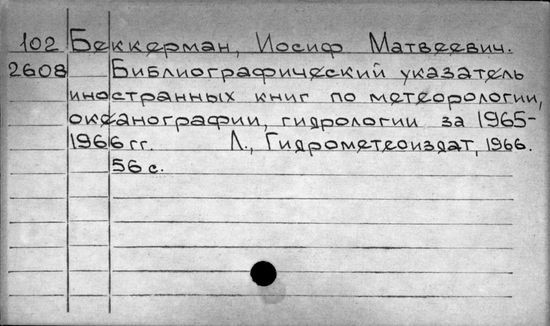 102 Беккерман, Иосиф Матвеевич.
2608 Библиографический указатель
иностранных книг по метеорологии,
океанографии, гидрологии за 1965-
1966 гг. Л., Гидрометеоиздат, 1966.
56 с.